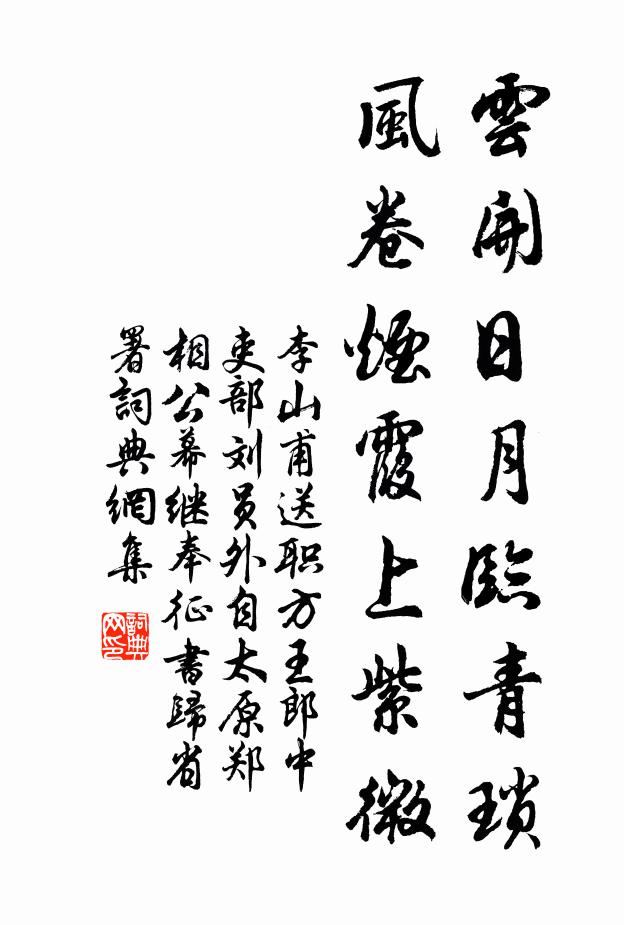 雲開日月臨青瑣
風卷煙霞上紫微
李山甫送职方王郎中
吏部刘员外自太原郑
相公幕继奉征书歸省
署詞典網集
詞典网印